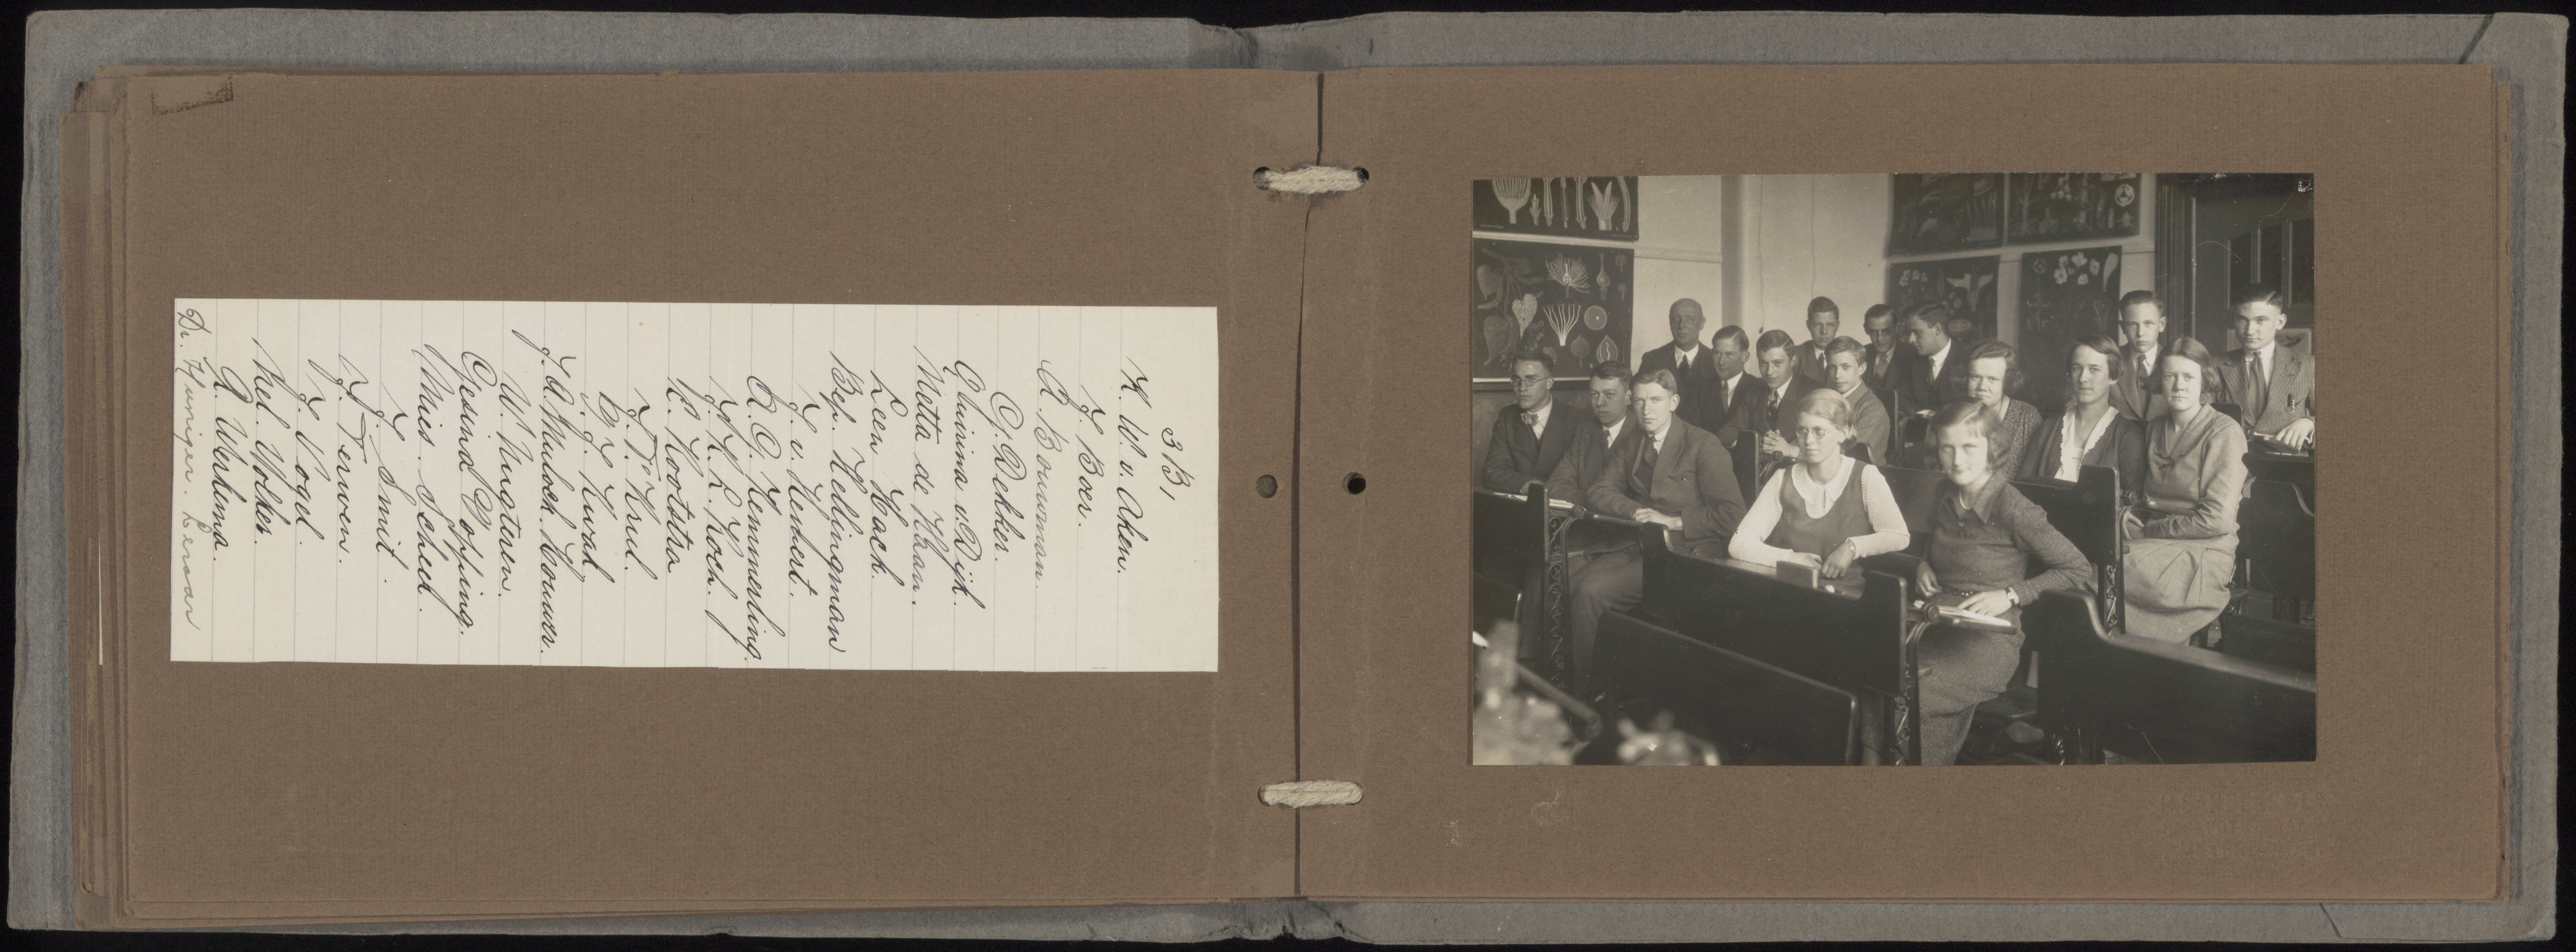 3 B,
H. W. v. Aken.
J. Boer.
A. Bouwman.
G. Dekker.
Quirina v. Dijk.
Metta de Haan.
Leen Hack.
Bep. Hellingman
J. v. Henkert.
A. G. Hemmerling.
J. H. L. Koch.
K. Kootstra
J. Krul.
J. Kuvak
J. A. Mulock. Houwer.
W. Nugteren.
Gesina Popping.
Mies. Scheek.
J. Smit.
J. Terwen.
J. Vogel.
Mel. Volker.
A. Werkema.
Dr. Hunger. Leraar